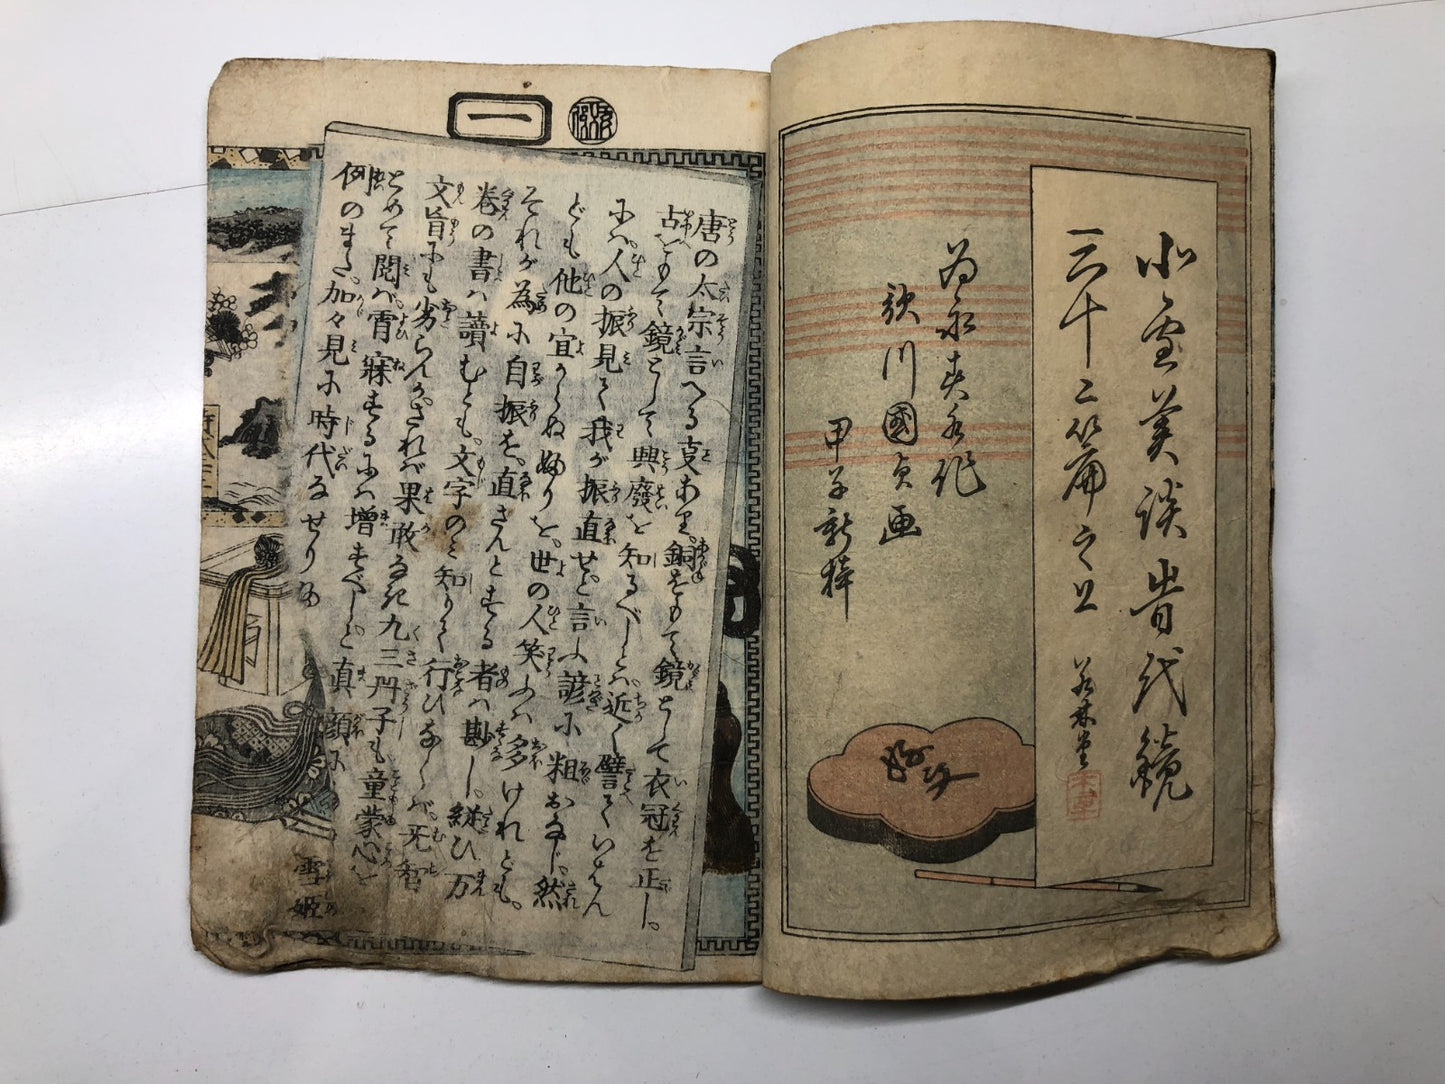 北雪美談時代鏡
三十二篇之上
若林堂
為永春水作
歌川國貞画
甲子新梓
一
唐の太宗言へる叓あり。銅をもて鏡として衣冠を正し。
古をもて鏡として興廢を知るべしとハ近く譬ていはん
にハ人の振見て我が振直せと言ふ諺に粗おなじ。然
ども他の宜からぬふりを。世の人笑ふハ多けれども。
それが為に自振を。直さんとする者ハ尠し。縦ひ万
巻の書ハ讀むとも。文字のミ知りて行ひなくバ。无智
文旨にも劣らんか。されバ果敢なき九三丹子も童蒙心を
とめて閲バ。宵寐するにハ増すべしと。真顔に
例のまた。加々見に時代なせりぬ
雪姫